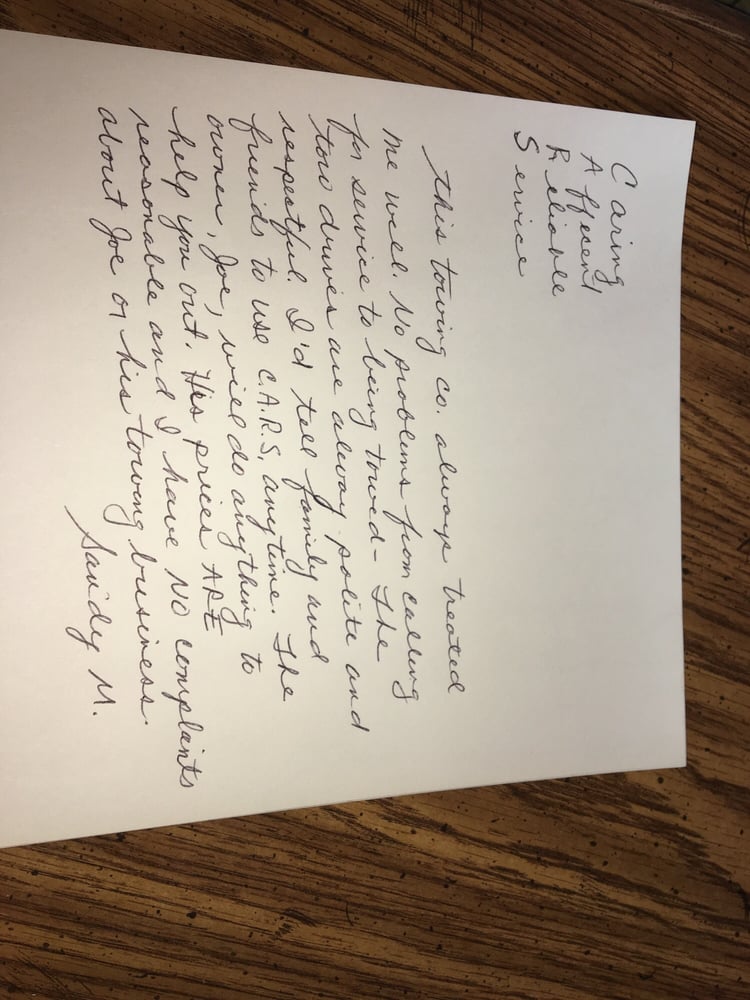 Caring
Affecent
Reliable
Service
This towing co. always treated
me well. No problems from calling
for service to being towed - The
tow drivers are alway polite and
respectful. I'd tell family and
friends to use C.A.R.S. anytime. The
owner, Joe, will do anything to
help you out. His prices ARE
reasonable and I have NO complaints
about Joe or his towing business.
Sandy M.